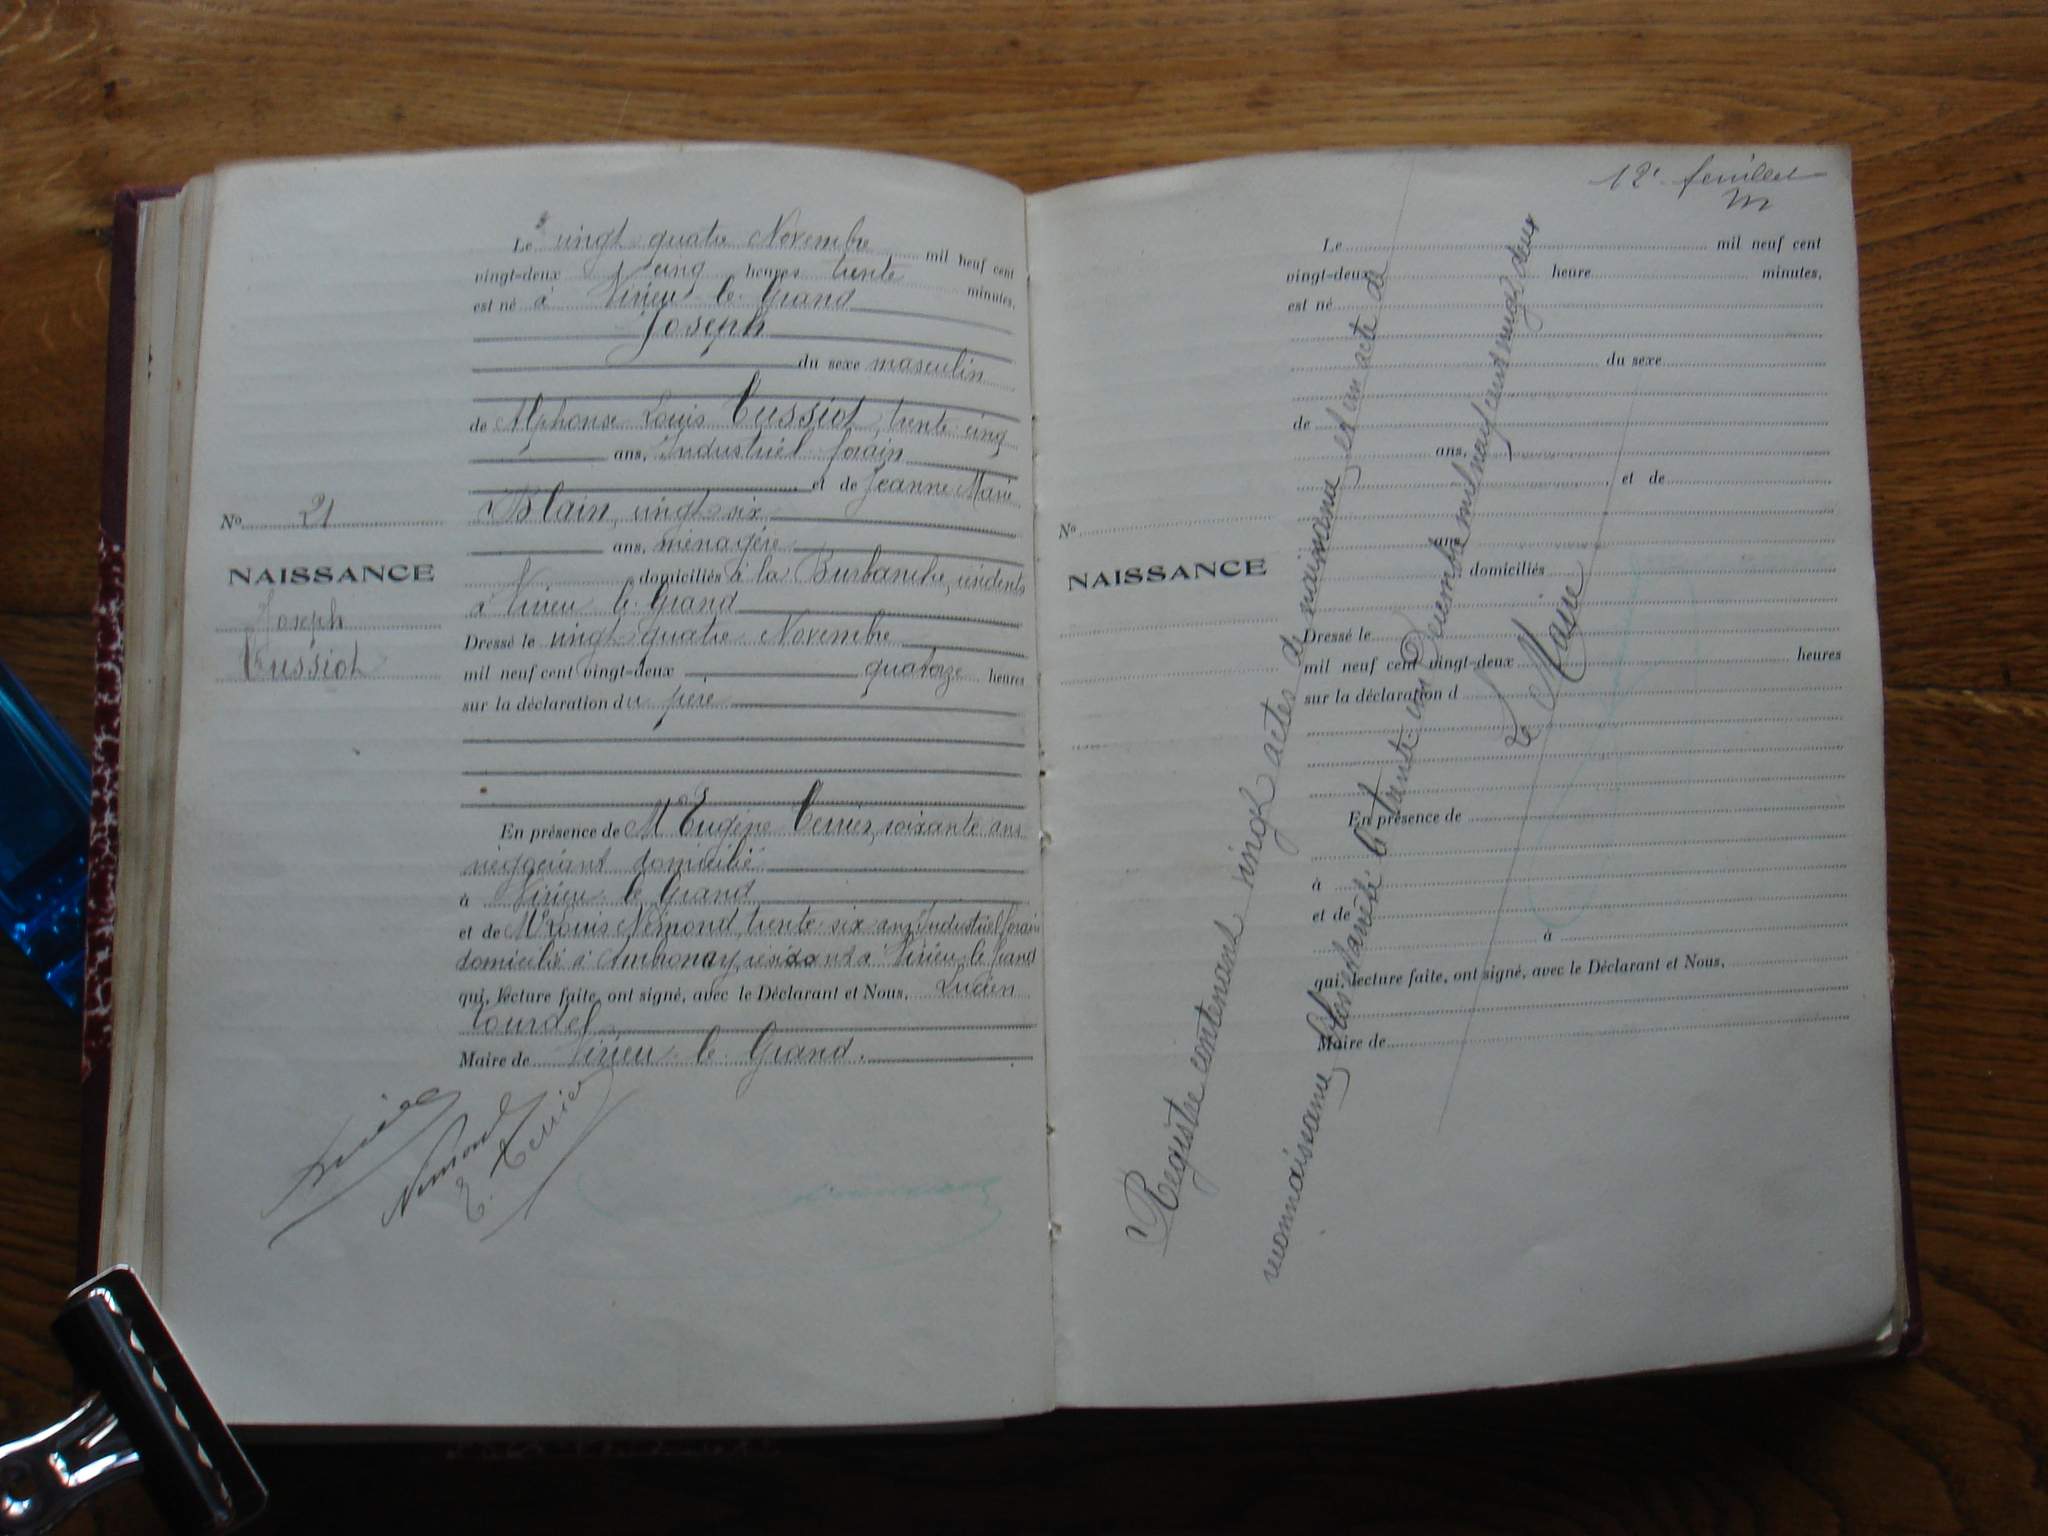 Le vingt quatre Novembre mil neuf cent
vingt-deux cinq heures trente minutes,
est né à Virieu-le-Grand
Joseph
du sexe masculin
de Alphonse Louis Tussiot, trente cinq
ans, Industriel forain
et de Jeanne Marie
Blain, vingt six
ans, ménagère
domiciliés à la Burbanche, résidents
à Virieu le Grand
Dressé le vingt quatre Novembre
mil neuf cent vingt-deux quatorze heures
sur la déclaration du père
En présence de M Eugène Terrier, soixante ans
négociant domicilié
à Virieu le Grand
et de M Louis Némond, trente-six ans, Industriel forain
domicilié à Ambronay, résidant à Virieu-le-Grand
qui, lecture faite, ont signé, avec le Déclarant et Nous, Lucien
Tourdel
Maire de Virieu-le-Grand.
Nemond
E. Terrier
No 21
NAISSANCE
Joseph
Tussiot
12e feuillet
Le mil neuf cent
vingt-deux heure minutes,
est né
du sexe
de
ans,
et de
ans,
domiciliés
Dressé le
mil neuf cent vingt-deux heures
sur la déclaration d
En présence de
à
et de
à
qui, lecture faite, ont signé, avec le Déclarant et Nous,
Maire de
No
NAISSANCE
Registre contenant vingt actes de naissance et un acte de
reconnaissance, Clos et arrêté le trente un Décembre mil neuf cent vingt deux
Le Maire